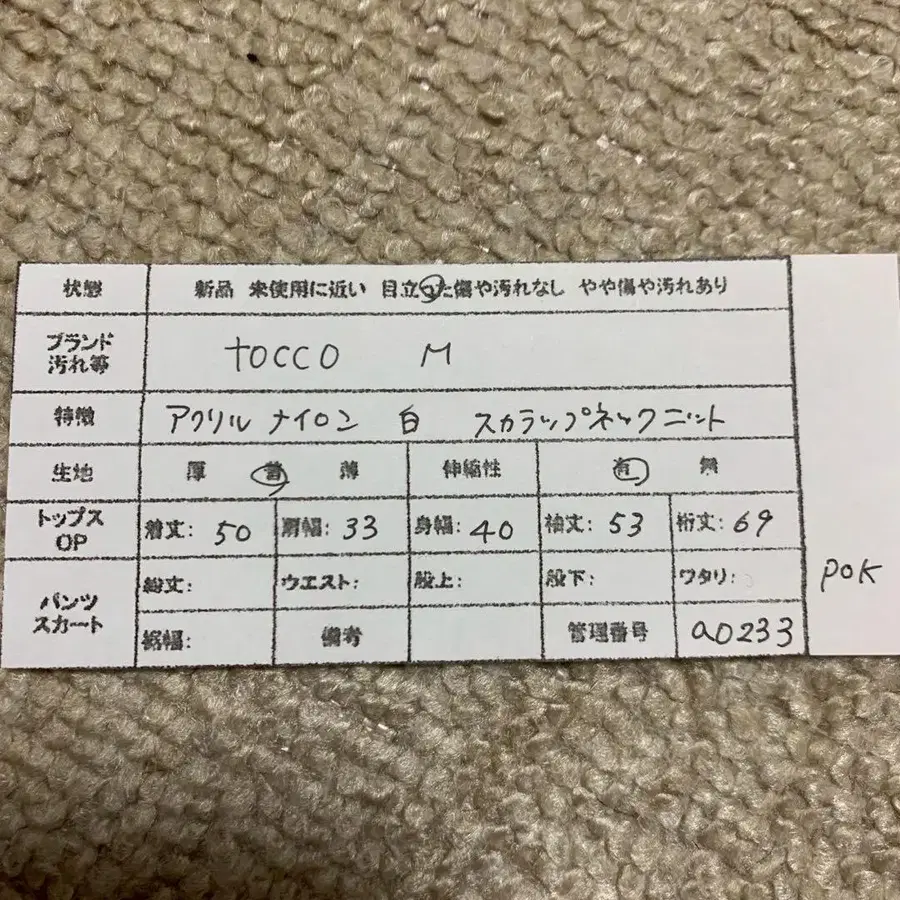 状態 新品 未使用に近い 目立った傷や汚れなし やや傷や汚れあり
ブランド
汚れ等 tocco M
特徴 アクリル ナイロン 白 スカラップネックニット
生地 厚 普 薄 伸縮性 有 無
トップス
OP 着丈: 50 肩幅: 33 身幅: 40 袖丈: 53 裄丈: 69
パンツ
スカート 総丈: ウエスト: 股上: 股下: ワタリ:
裾幅: 備考 管理番号 a0233
POK